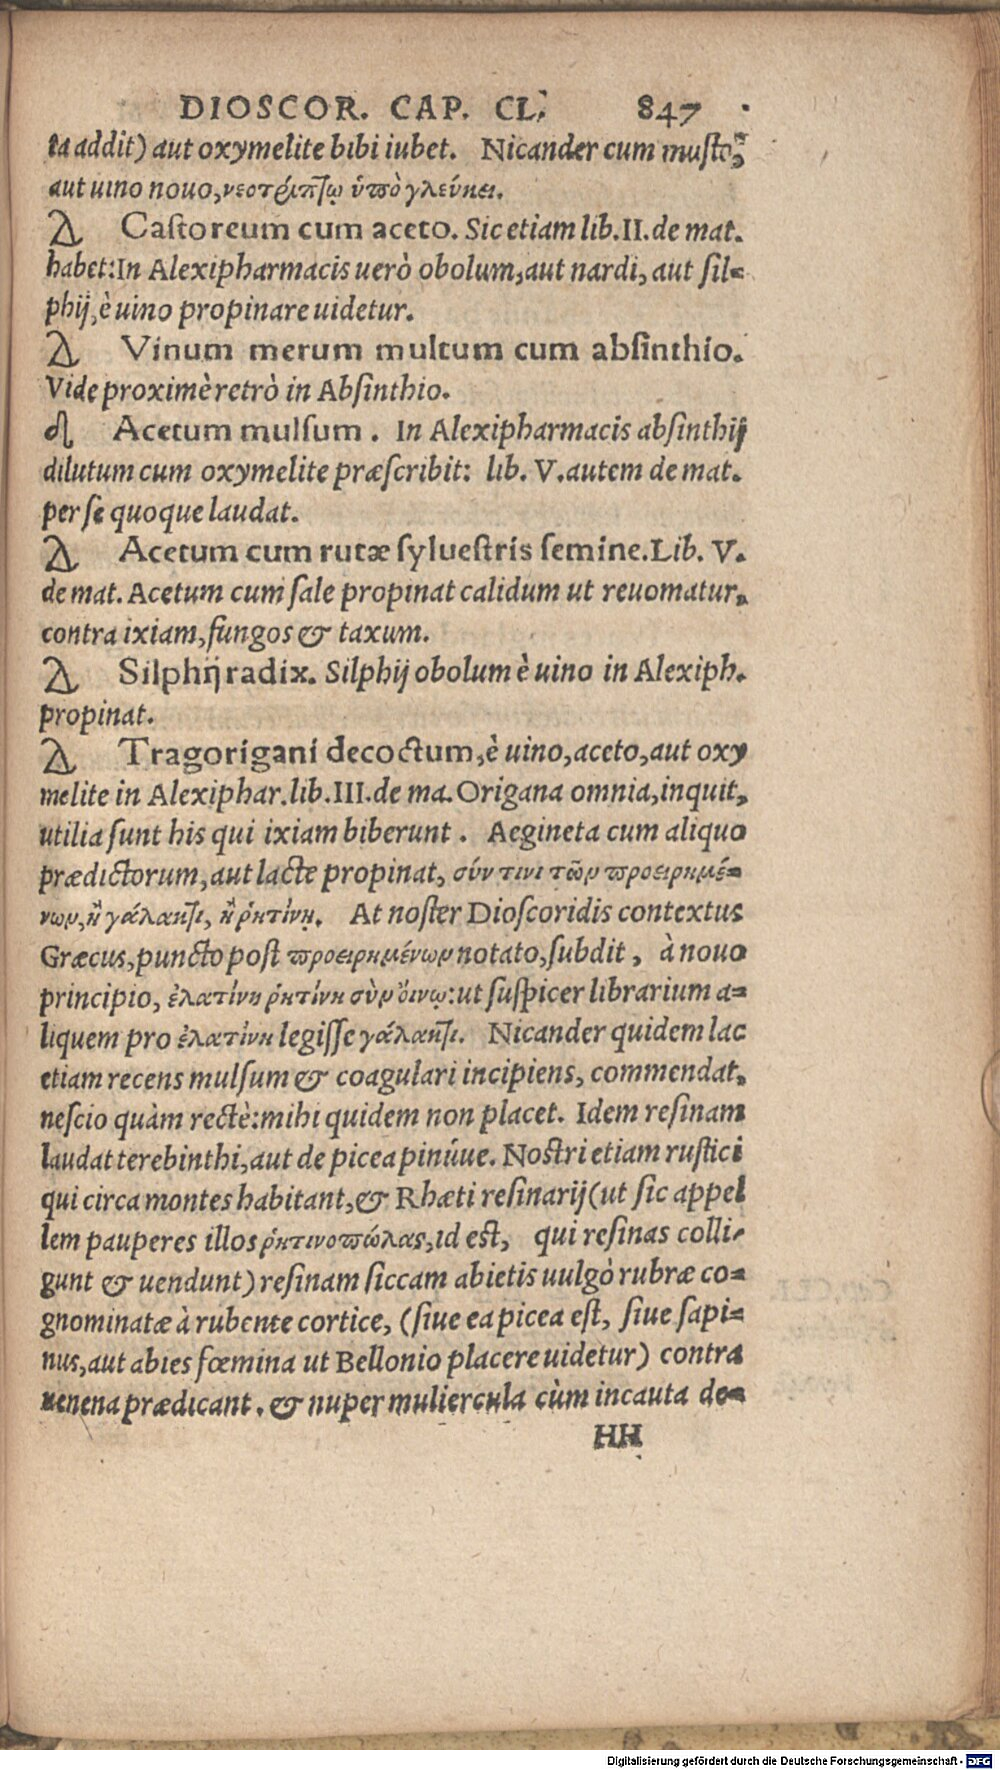 DIOSCOR. CAP. CL. 847
ta addit) aut oxymelite bibi iubet. Nicander cum musto,
aut uino nouo, νεοτρίπτῳ ὑπὸ γλεύκει.
Δ Castoreum cum aceto. Sic etiam lib. II. de mat.
habet: In Alexipharmacis uerò obolum, aut nardi, aut sil-
phij, è uino propinare uidetur.
Δ Vinum merum multum cum absinthio.
Vide proximè retrò in Absinthio.
Acetum mulsum. In Alexipharmacis absinthij
dilutum cum oxymelite præscribit: lib. V. autem de mat.
per se quoque laudat.
Δ Acetum cum rutæ syluestris semine. Lib. V.
de mat. Acetum cum sale propinat calidum ut reuomatur,
contra ixiam, fungos & taxum.
Δ Silphij radix. Silphij obolum è uino in Alexiph.
propinat.
Δ Tragorigani decoctum, è uino, aceto, aut oxy
melite in Alexiphar. lib. III. de ma. Origana omnia, inquit,
utilia sunt his qui ixiam biberunt. Aegineta cum aliquo
prædictorum, aut lacte propinat, σύν τινι τῶν προειρημέ-
νων, ἢ γάλακτι, ἢ ῥητίνῃ. At noster Dioscoridis contextus
Græcus, puncto post προειρημένων notato, subdit, à nouo
principio, ἐλατίνη ῥητίνη σὺν οἴνῳ: ut suspicer librarium a-
liquem pro ἐλατίνη legisse γάλακτι. Nicander quidem lac
etiam recens mulsum & coagulari incipiens, commendat,
nescio quàm rectè: mihi quidem non placet. Idem resinam
laudat terebinthi, aut de picea pinúue. Nostri etiam rustici
qui circa montes habitant, & Rhæti resinarij (ut sic appel
lem pauperes illos ῥητινοπώλας, id est, qui resinas colli-
gunt & uendunt) resinam siccam abietis uulgò rubræ co-
gnominatæ à rubente cortice, (siue ea picea est, siue sapi-
nus, aut abies fœmina ut Bellonio placere uidetur) contra
uenena prædicant. & nuper muliercula cùm incauta de-
HH
Digitalisierung gefördert durch die Deutsche Forschungsgemeinschaft - DFG